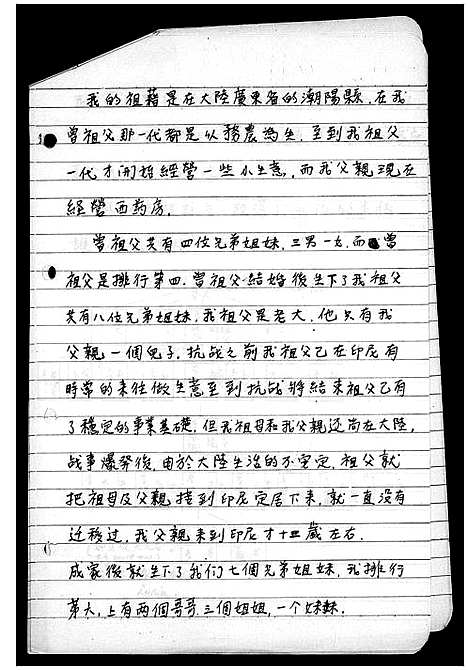 我的祖籍是在大陸廣東省的潮陽縣.在我
曾祖父那一代都是以務農為生.至到我祖父
一代才開始經營一些小生意,而我父親現在
經營西药房.
曾祖父共有四位兄弟姐妹.三男一女.而曾
祖父是排行第四.曾祖父結婚後生下了我祖父
共有八位兄弟姐妹,我祖父是老大.他只有我
父親一個兒子.抗战之前我祖父已在印尼有
時常的來往做生意至到抗战將結束祖父已有
了穩定的事業基礎.但我祖母和我父親还尚在大陸,
战事爆發後,由於大陸生活的不安定.祖父就
把祖母及父親接到印尼定居下來,就一直沒有
迁移过,我父親來到印尼才十三歲左右.
成家後就生下了我们七個兄弟姐妹,我排行
第六,上有两個哥哥三個姐姐,一個妹妹.